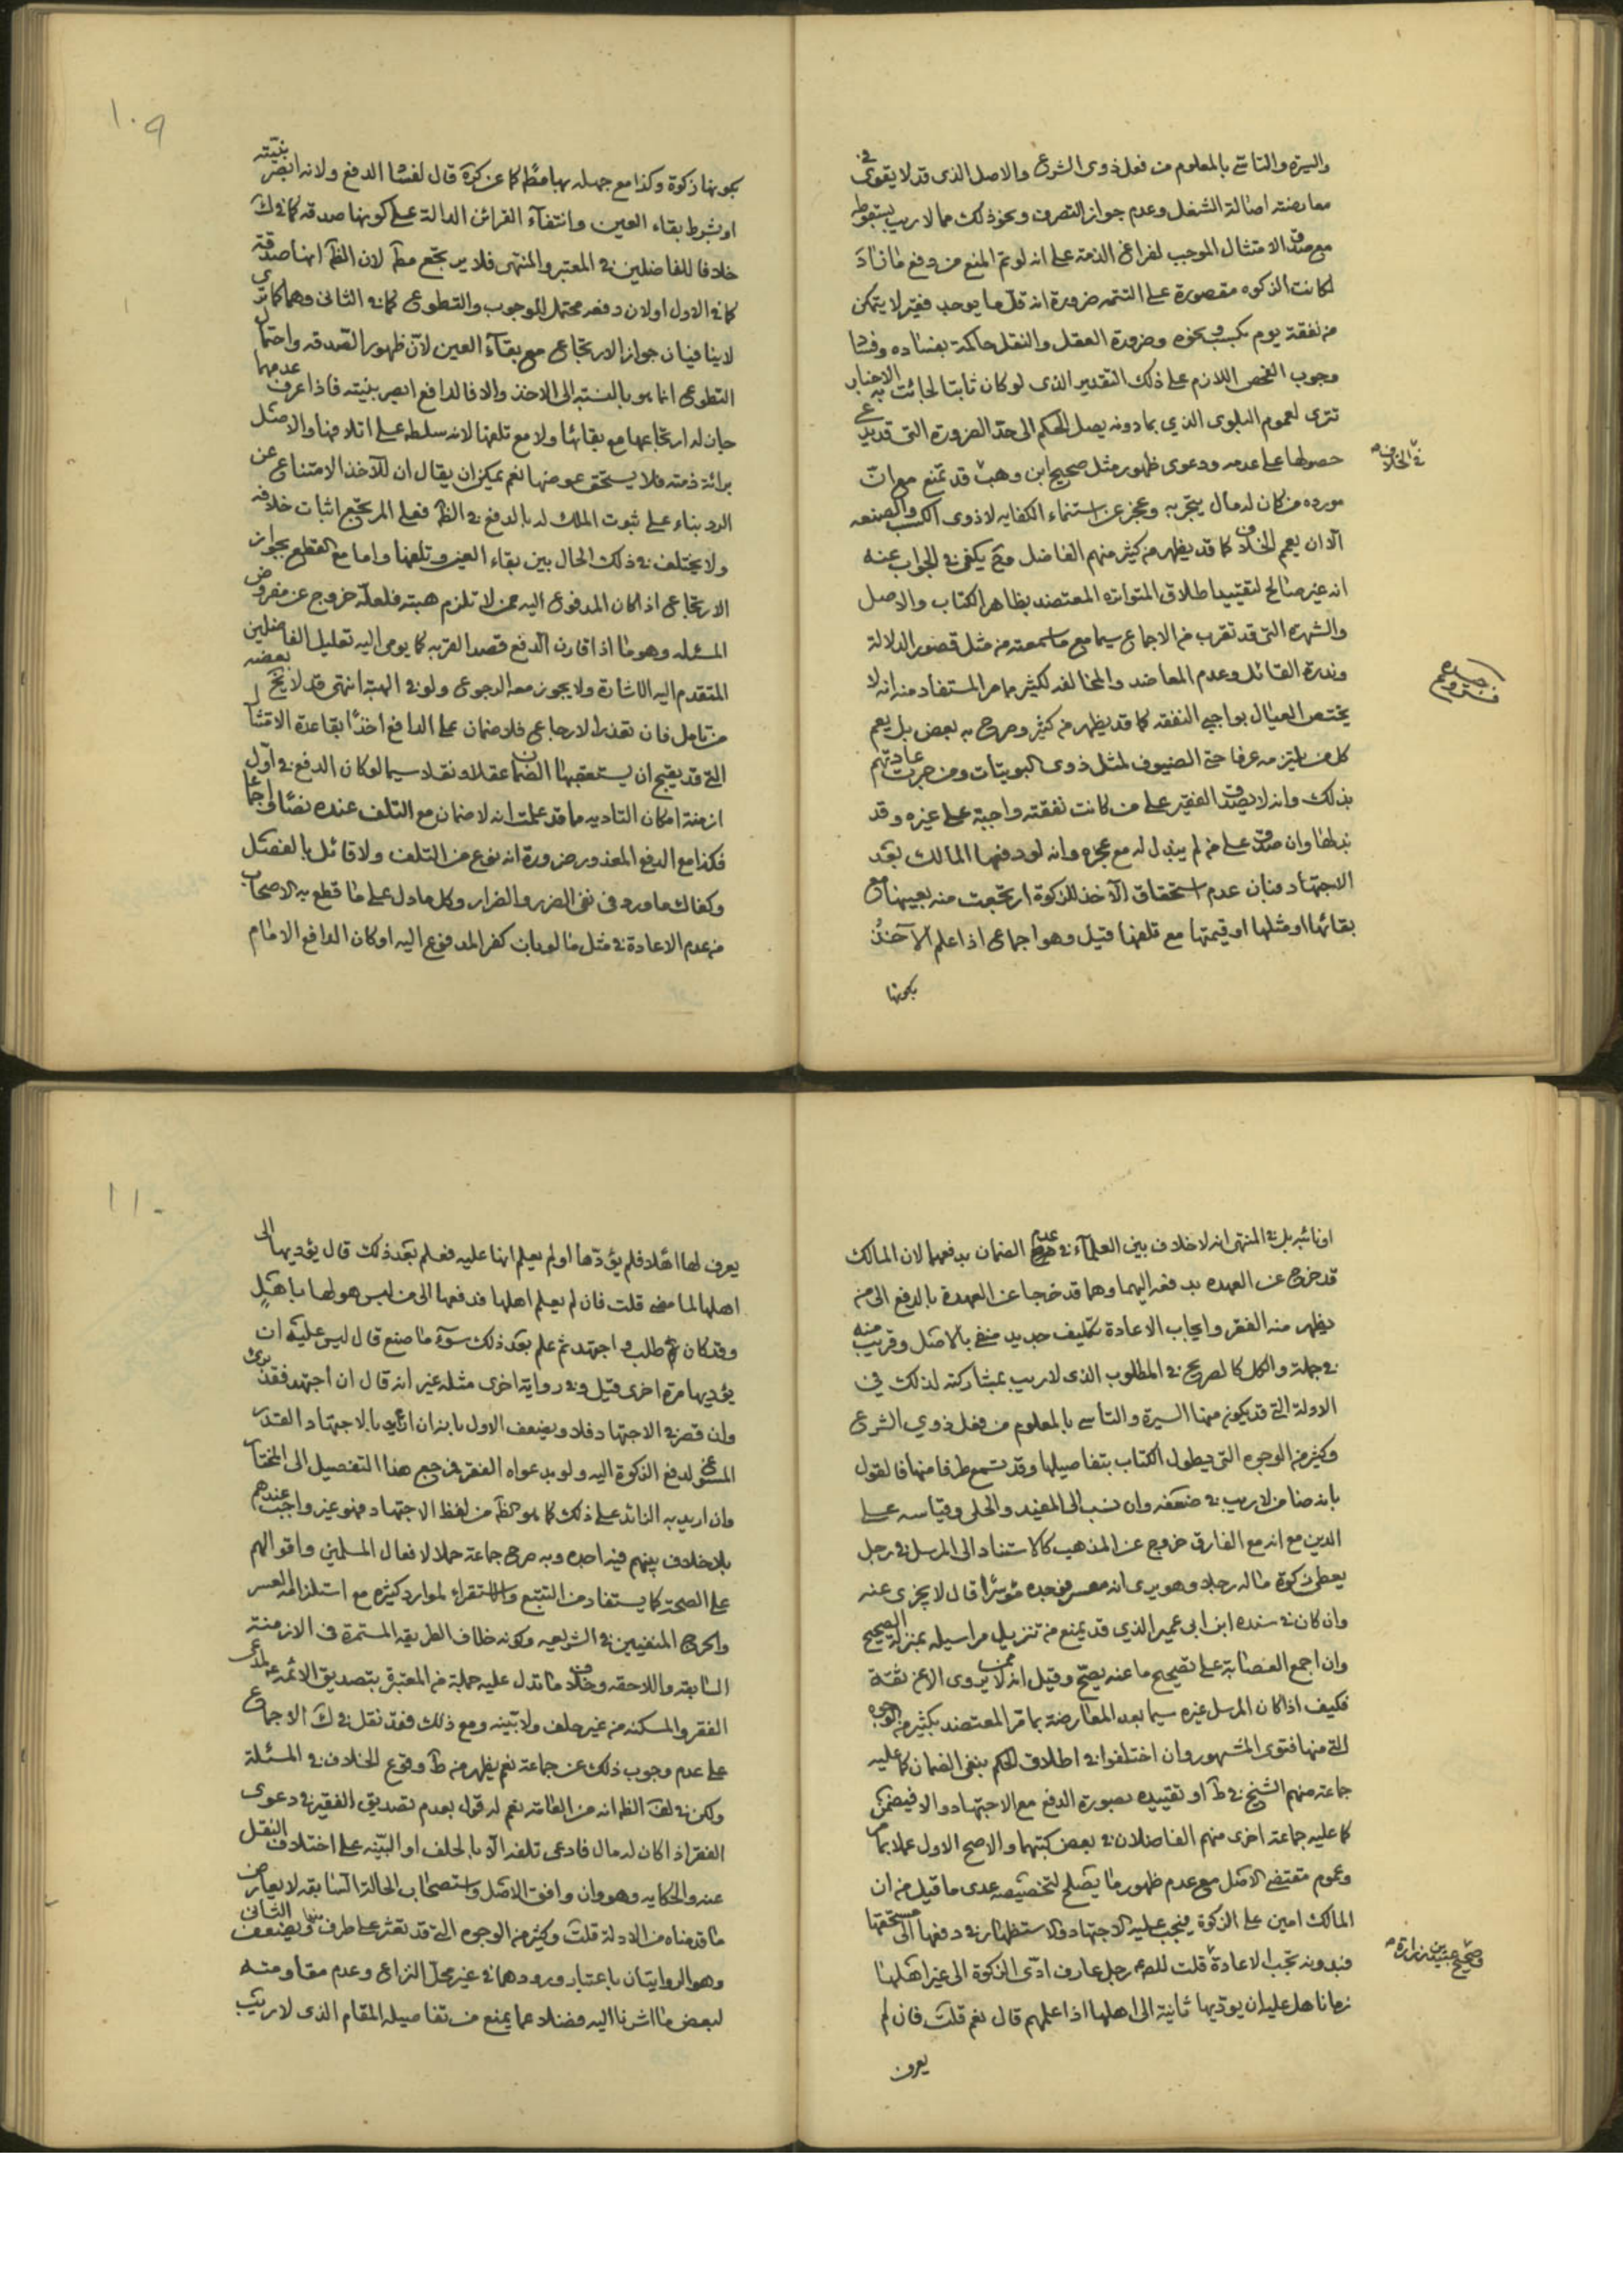 والسيرة والتاسي بالمعلوم من فعل ذوى الشرع والاصل الذى قد لا يقوى في
معارضته اصالة الشغل وعدم جواز التصرف ونحو ذلك مما لا ريب بسقوطه
مع صدق الامتثال الموجب لفراغ الذمة على انه لو تم المنع من دفع ما زاد
لكانت الزكوة مقصورة على التتمه ضرورة انه قل ما يوجد فقير لا يتمكن
من نفقة يوم بكسب ونحوه وضرورة العقل والنقل حاكمة بفساده وفساد
وجوب الفحص اللازم على ذلك التقدير الذى لو كان ثابتا لجائت به الاخبار
تترى لعموم البلوى الذي بما دونه يصل الحكم الى حد الضرورة التى قد يدعى
حصولها على عدمه ودعوى ظهور مثل صحيح ابن وهب قد تمنع مع ان
في الخلاف
مورده من كان له مال يتجر به وعجز عن استنماء الكفايه لا ذوى الكسب والصنعه
الا ان يعم الخلاف كما قد يظهر من كثير منهم الفاضل وح يكفى في الجواب عنه
انه غير صالح لتقييد اطلاق المتواتره المعتضد بظاهر الكتاب والاصل
والشهرة التى قد تقرب من الاجماع سيما مع ما سمعته من مثل قصور الدلالة
وندرة القائل وعدم المعاضد والمخالفه لكثير مما مر المستفاد منه انه لا
يختص العيال بواجبي النفقه كما قد يظهر من كثير وصرح به بعض بل يعم
كل من يلتزمه عرفا حتى الضيوف لمثل ذوى البويتات ومن جرت عادتهم
بذلك وانه لا يصدق الفقير على من كانت نفقته واجبة على غيره وقد
بذلها وان صدق على من لم يبذل له مع عجزه وانه لو دفعها المالك بعد
الاجتهاد فبان عدم استحقاق الآخذ للزكوة ارتجعت منه بعينها مع
بقائها او مثلها او قيمتها مع تلفها قيل وهو اجماعى اذا علم الآخذ
بكونها
١٠٩
بكونها زكوة وكذا مع جهله بها مطلقا كما عن كرة قال لفساد الدفع ولانه ابصر بنيته
او بشرط بقاء العين وانتفاء القرائن الدالة على كونها صدقه كما في ك
خلافا للفاضلين في المعتبر والمنتهى فلا يرتجع مط لان الظ انها صدقة
كما في الاول اولان دفعه محتمل للوجوب والتطوع كما في الثانى وهما كما ترى
لا ينافيان جواز الارتجاع مع بقاء العين لان ظهور الصدقه واحتمال
التطوع انما هو بالنسبه الى الآخذ والا فالدافع ابصر بنيته فاذا عرف عدمها
جاز له ارتجاعها مع بقائها ولا مع تلفها لانه سلطه على اتلافها والاصل
برائة ذمته فلا يستحق عوضها نعم يمكن ان يقال ان للآخذ الامتناع عن
الرد بناء على ثبوت الملك له بالدفع في الظ فعلى المرتجع اثبات خلافه
ولا يختلف في ذلك الحال بين بقاء العين وتلفها واما مع القطع بجواز
الارتجاع اذا كان المدفوع اليه ممن لا تلزم هبته فلعله خروج عن مفروض
المسئله وهو ما اذا قارن الدفع قصد القربه كما يومى اليه تعليل الفاضلين
المتقدم اليه الاشارة ولا يجوز معه الرجوع ولو في الهبة انتهى قد لا يخ بعضه
من تامل فان تعذر الارجاع فلا ضمان على الدافع اخذا بقاعدة الامتثال
التى قد يقبح ان يستعقبها الضمان عقلا ونقلا سيما لو كان الدفع في اول
ازمنة امكان التاديه مما قد علمت انه لا ضمان مع التلف عنده نصا واجماعا
فكذا مع الدفع المعذور ضرورة انه نوع من التلف ولا قائل بالفصل
وكفاك ما ورد في نفى الضرر والضرار وكل ما دل على ما قطع به الاصحاب
من عدم الاعادة في مثل ما لو بان كفر المدفوع اليه او كان الدافع الامام
او نائبه بل في المنتهى انه لا خلاف بين العلماء في عدم الضمان بدفعهما لان المالك
قد خرج عن العهده بدفعه اليهما وهما قد خرجا عن العهدة بالدفع الى من
يظهر منه الفقر وايجاب الاعادة تكليف جديد منفى بالاصل وقريب منه
في جملة والكل كالصريح في المطلوب الذى لا ريب بمشاركته لذلك في
الادلة التى قد يكون منها السيرة والتأسى بالمعلوم من فعل ذوي الشرع
وكثير من الوجوه التى يطول الكتاب بتفاصيلها وقد تسمع طرفا منها فالقول
بانه ضامن لا ريب في ضعفه وان نسب الى المفيد والحلى وقياسه على
الدين مع انه مع الفارق خروج عن المذهب كالاستناد الى المرسل في رجل
يعطى زكوة ماله رجلا وهو يرى انه معسر فوجده موسرا قال لا يجزى عنه
وان كان في سنده ابن ابى عمير الذي قد يمنع من تنزيل مراسيله بمنزلة الصحيح
وان اجمع العصابة على تصحيح ما عنه يصح وقيل انه ممن لا يروى الا عن ثقة
فكيف اذا كان المرسل غيره سيما بعد المعارضة بما مر المعتضد بكثير من الوجوه
التى منها فتوى المشهور وان اختلفوا في اطلاق الحكم بنفى الضمان كما عليه
جماعة منهم الشيخ في ط او تقييده بصورة الدفع مع الاجتهاد والا فيضمن
كما عليه جماعة اخرى منهم الفاضلان في بعض كتبهما والاصح الاول عملا بما مر
وعموم مقتضى الاصل مع عدم ظهور ما يصلح لتخصيصه عدى ما قيل من ان
المالك امين على الزكوة فيجب عليه الاجتهاد والاستظهار في دفعها الى مستحقها
فبدونه تجب الاعادة قلت للص رجل عارف ادى الزكوة الى غير اهلها
وصحيح عبيد بن زرارة
زمانا هل عليه ان يؤديها ثانية الى اهلها اذا علمهم قال نعم قلت فان لم
يعرف
١١٠
يعرف لها اهلا فلم يؤدها او لم يعلم انها عليه فعلم بعد ذلك قال يؤديها الى
اهلها لما مضى قلت فان لم يعلم اهلها فدفعها الى من ليس هو لها باهل
وقد كان طلب واجتهد ثم علم بعد ذلك سوء ما صنع قال ليس عليه ان
يؤديها مرة اخرى قيل وفي رواية اخرى مثله غير انه قال ان اجتهد فقد برئ
وان قصر في الاجتهاد فلا ويضعف الاول بانه ان اريد بالاجتهاد القدر
المسوغ لدفع الزكوة اليه ولو بدعواه الفقر فرجع هذا التفصيل الى المختار
وان اريد به الزائد على ذلك كما هو الظ من لفظ الاجتهاد فهو غير واجب عندهم
بلا خلاف بينهم فيه اجده وبه صرح جماعة حملا لافعال المسلمين واقوالهم
على الصحة كما يستفاد من التتبع والاستقراء لموارد كثيره مع استلزامه العسر
والحرج المنفيين في الشريعه وكونه خلاف الطريقه المستمرة فى الازمنة
السابقه واللاحقه وخلاف ما تدل عليه جملة من المعتبرة بتصديق الائمه ع لمدعى
الفقر والمسكنه من غير حلف ولا بينه ومع ذلك فقد نقل في ك الاجماع
على عدم وجوب ذلك عن جماعة نعم يظهر من ط وقوع الخلاف في المسئلة
ولكن في لف الظ انه من العامة نعم له قول بعدم تصديق الفقير في دعوى
الفقر اذا كان له مال فادعى تلفه الا بالحلف او البينه على اختلاف النقل
عنه والحكايه وهو وان وافق الاصل واستصحاب الحالة السابقه لا يعارض
ما قدمناه من الادلة قلت وكثير من الوجوه التى قد تعثر على طرف منها ويضعف الثانى
وهو الروايتان باعتبار ورودهما في غير محل النزاع وعدم مقاومته
لبعض ما اشرنا اليه فضلا عما يمنع من تفاصيله المقام الذى لا ريب